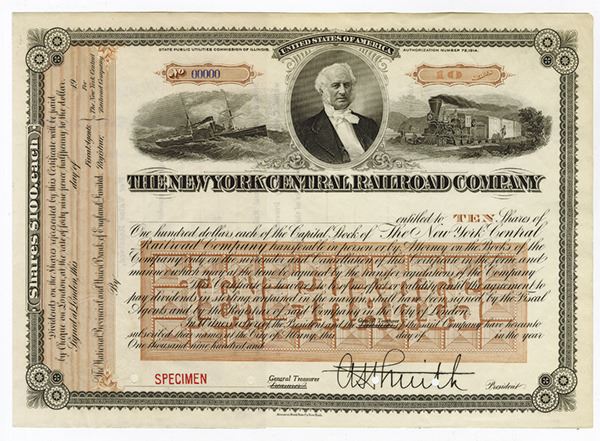 UNITED STATES OF AMERICA
STATE PUBLIC UTILITIES COMMISSION OF ILLINOIS.
AUTHORIZATION NUMBER 72,1914.
No 00000
10
THE NEW YORK CENTRAL RAILROAD COMPANY
entitled to TEN Shares of
One hundred dollars each of the Capital Stock of The New York Central
Railroad Company transferable in person or by Attorney on the Books of the
Company only on the surrender and Cancellation of this Certificate in the form and
manner which may at the time be required by the transfer regulations of the Company
pay dividends in sterling contained in the margin shall have been signed by the Fiscal
Agents and by the Registrar of said Company in the City of London.
In Witness whereof the President and the Treasurer of the said Company have hereunto
subscribed their names at the City of Albany, this day of in the year
One thousand nine hundred and
TEN SHARES
SPECIMEN
General Treasurer
President
Shares $100. each
Dividends on the Shares represented by this Certificate will be paid
by Cheque on London, at the rate of forty nine pence halfpenny to the dollar.
Signed at London, this day of 19
Fiscal Agents
For The New York Central Railroad Company.
The National Provincial and Union Bank of England, Limited Registrar,
By